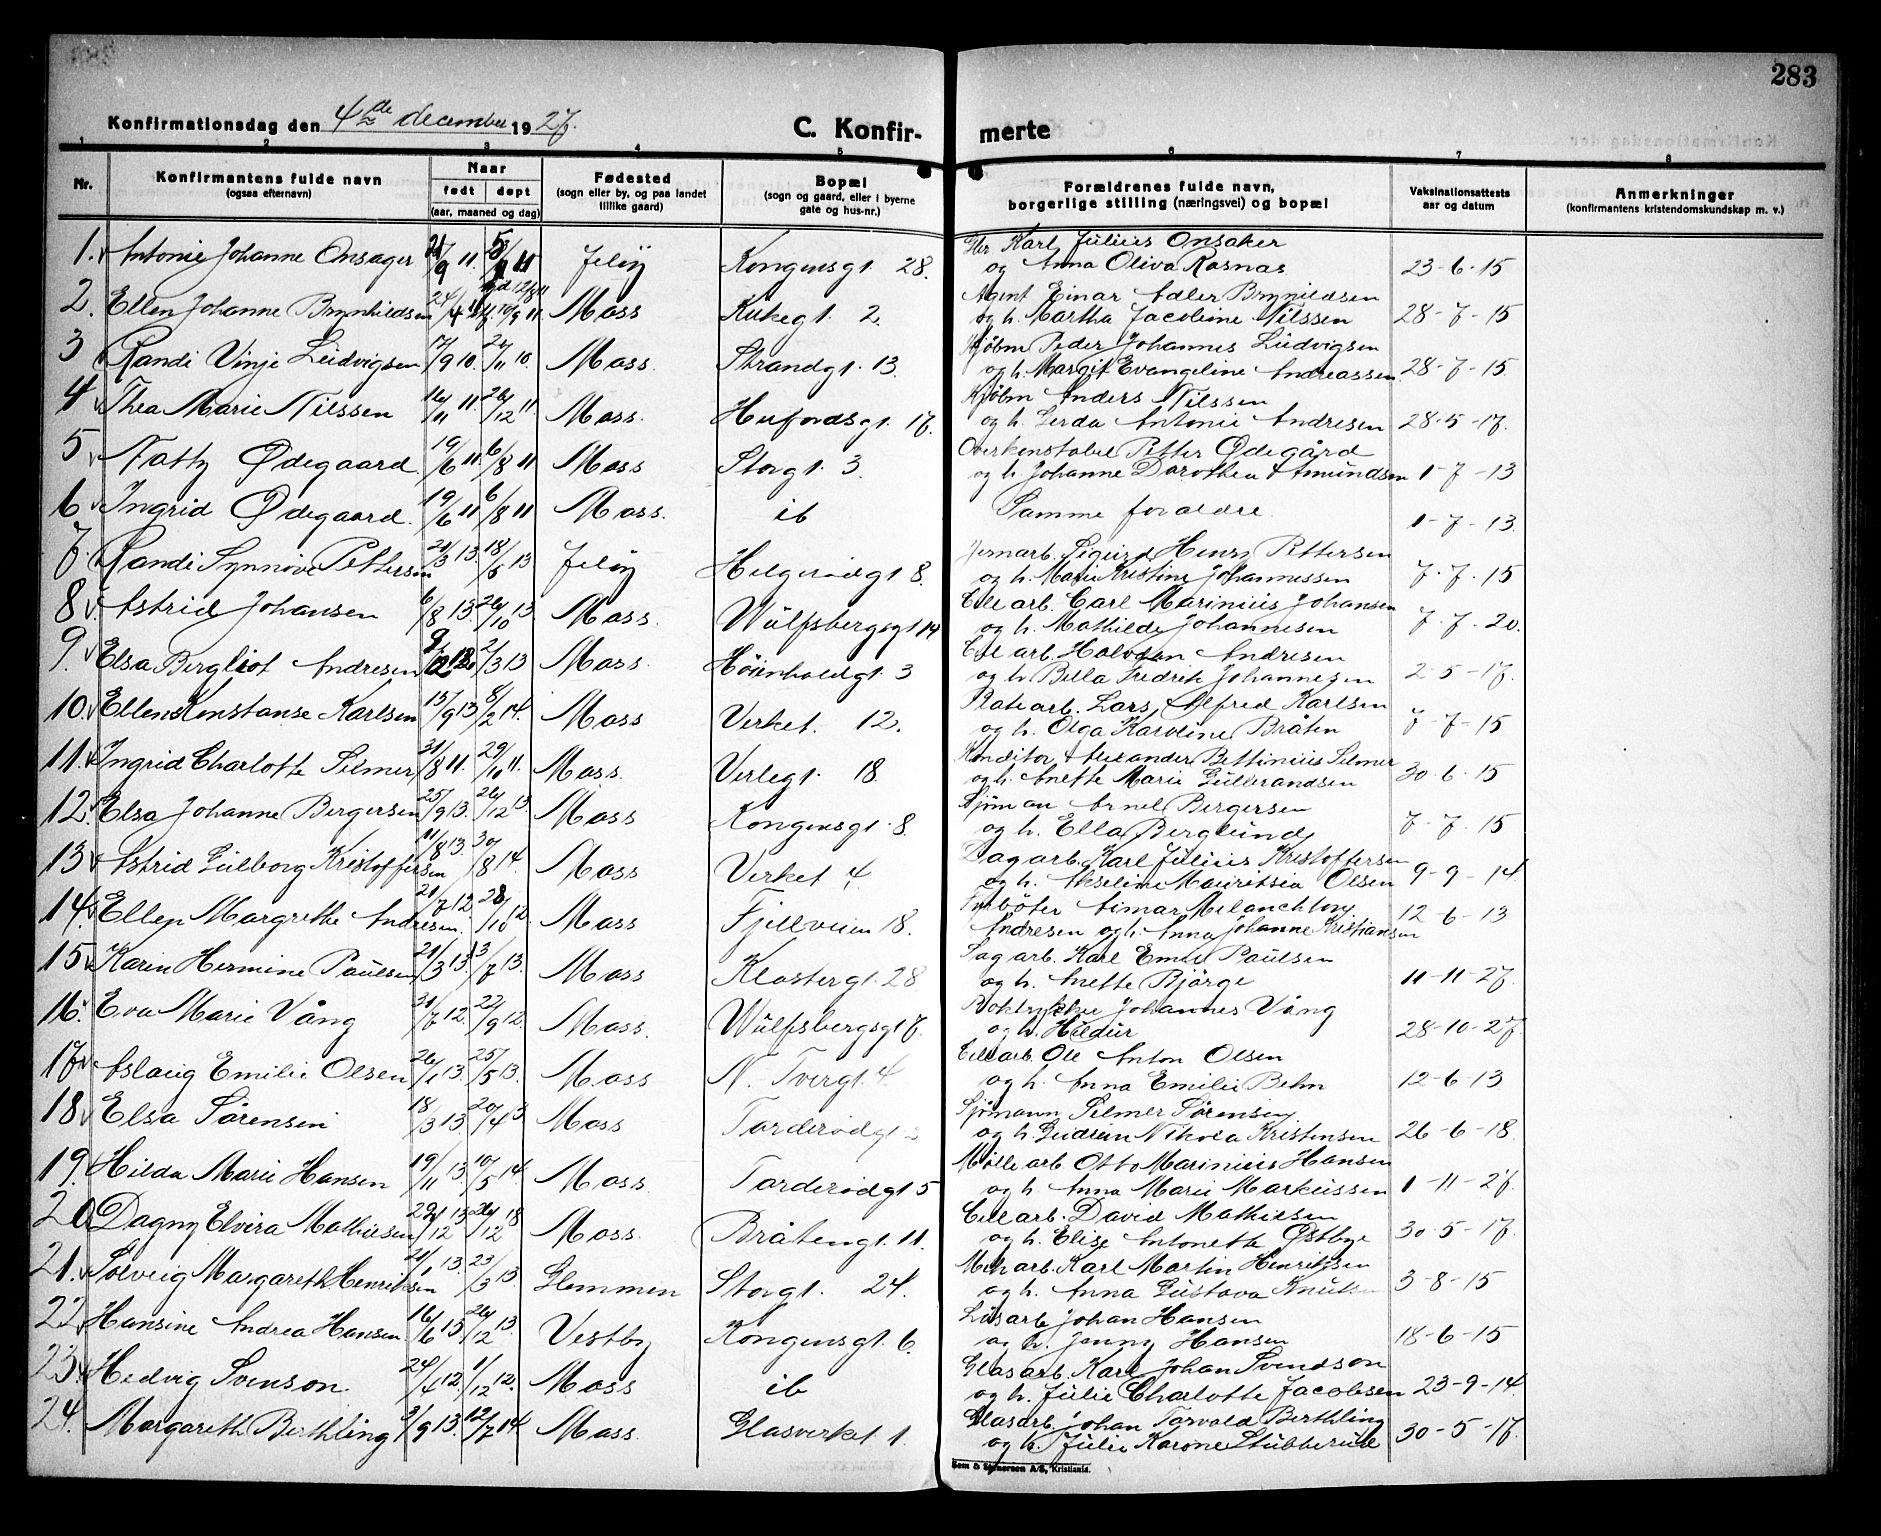 283
Konfirmationsdag den 4de december 1927.
C. Konfirmerte
1 2 3 4 5 6 7 8
Nr. Konfirmantens fulde navn (ogsaa efternavn) Naar født døpt (aar, maaned og dag) Fødested (sogn eller by, og paa landet tillike gaard) Bopæl (sogn og gaard, eller i byerne gate og hus-nr.) Forældrenes fulde navn, borgerlige stilling (næringsvei) og bopæl Vaksinationsattests aar og datum Anmerkninger (konfirmantens kristendomskundskap m. v.)
1. Antonie Johanne Onsager Jeløy Kongensgt. 28. Karl Julius Onsaker
og Anna Oliva Rosnas 23-6-15
2. Ellen Johanne Brynhildsen Moss Kirkegt. 2. Agent Einar Adler Brynildsen
og h. Martha Jacobine Nilssen 28-7-15
3 Randi Vinje Ludvigsen 17/9 10. Moss Strandgt. 13. Kjøbm Peder Johannes Ludvigsen
og h. Margit Evangeline Andreassen 28-7-15
4 Thea Marie Nilssen 16/11 11. 26/12 11. Moss. 17. Kjøbm Anders Nilssen
og h. Gerda Antonie Andresen 28-5-17.
5 Natty Ødegaard 19/6 11. 6/8 11 Moss Storgt. 3. Overkonstabel Petter Ødegård
og h. Johanne Dorothea Amundsen 1-7-13
6 Ingrid Ødegaard. 19/6 11 6/8 11 Moss. ib Samme foraldre 1-7-13.
7. Randi Synnøve Pettersen 21/3 13. 18/5 13 Jeløy Helgerødgt 8. Jernarb. Sigurd Henry Pettersen
og h. Marie Kristine Johannessen 7-7-15
8 Astrid Johansen 6/8 13 26/10 13 Moss. Wulfsbergsgt 14 Cellearb. Carl Marinius Johansen
og h. Mathilde Johannesen 7-7-20.
9. Elsa Bergliot Andresen 2/3 13 Moss. 3 Cellarb. Halvdan Andresen
og h. Bella Fredrik Johannesen 2-5-17.
10. Ellen Konstanse Karlsen 15/9 13 8/2 14. Moss Verket. 12. Lars Alfred Karlsen
og h. Olga Karoline Bråten 7-7-15
11. Ingrid Charlotte Selmer 31/8 11. 29/10 11. Moss. 18 Konditor Alexander Bettinius Selmer
og h. Anette Marie Gulbrandsen 30-6-15
12. Elsa Johanne Bergersen 25/9 13. 26/12 13. Moss Kongensgt. 8. Sjøman Arnel Bergersen
og h. Ella Berglund 7-7-15
13 Astrid Gulborg Kristoffersen 11/8 13. 30/8 14 Moss Verket 4 Dagarb. Karl Julius Kristoffersen
og h. Akseline Mauritsia Olsen 9-9-14
14. Ellen Margrethe Andresen. 21/7 12 28/10 12. Moss Fjellveien 18. Fyrbøter Aimar Melanchton
Andresen og h. Anna Johanne Kristiansen 12-6-13
15 Karin Hermine Paulsen 21/3 13. 13/7 13. Moss Klostergt. 28 Sagarb. Karl Emil Paulsen
og h. Anette Bjørge 11-11-27.
16. Eva Marie Vång 21/7 12. 22/9 12. Moss. Wulfsbergsgt 7. Boktrykker Johannes Vång
og h. Hildur 28-10-27
17 Aslaug Emilie Olsen 26/1 13. 25/5 13. Moss N. Tvergt. 4. Cellearb. Ole Anton Olsen
og h. Anna Emilie Behn 12-6-13
18 Elsa Sørensen 18/3 13. 20/4 13 Moss Torderødgt Sjømann Selmer Sørensen
og h. Gudrun Nikola Kristensen 26-6-18.
19. Hilda Marie Hansen 19/11 13. 10/5 14 Moss Torderødgt 5 Møllearb Otto Marinius Hansen
og h. Anna Marie Markussen 1-11-27.
20 Dagny Elvira Mathiesen 26/12 18 Moss. Bråtengt. 11. Cellarb. David Mathiesen
og h. Elise Antonette Østbye 30-5-17.
21. Solveig Margareth Henriksen 21/1 13. 23/3 13. Glemmen Storgt. 24. Mekarb. Karl Martin Henriksen
og h. Anna Gustava Knutsen 3-8-15
22. Hansine Andrea Hansen. 16/6 13 26/12 13. Vestby Kongensgt. 6. Løsarb Johan Hansen
og h. Jenny Hansen 18-6-15
23. Hedvig Svenson 24/4 12. 1/12 12. Moss ib Glasarb. Karl Johan Svendson
og h. Julie Charlotte Jacobsen 23-9-14.
24. Margareth Berthling 3/9 13. 12/7 14. Moss. Glasverket 1. Glasarb. Johan Torvald Berthling
og h. Julie Karone Stubberud 30-5-17.
Sem & Stenersen A/S, Kristiania.